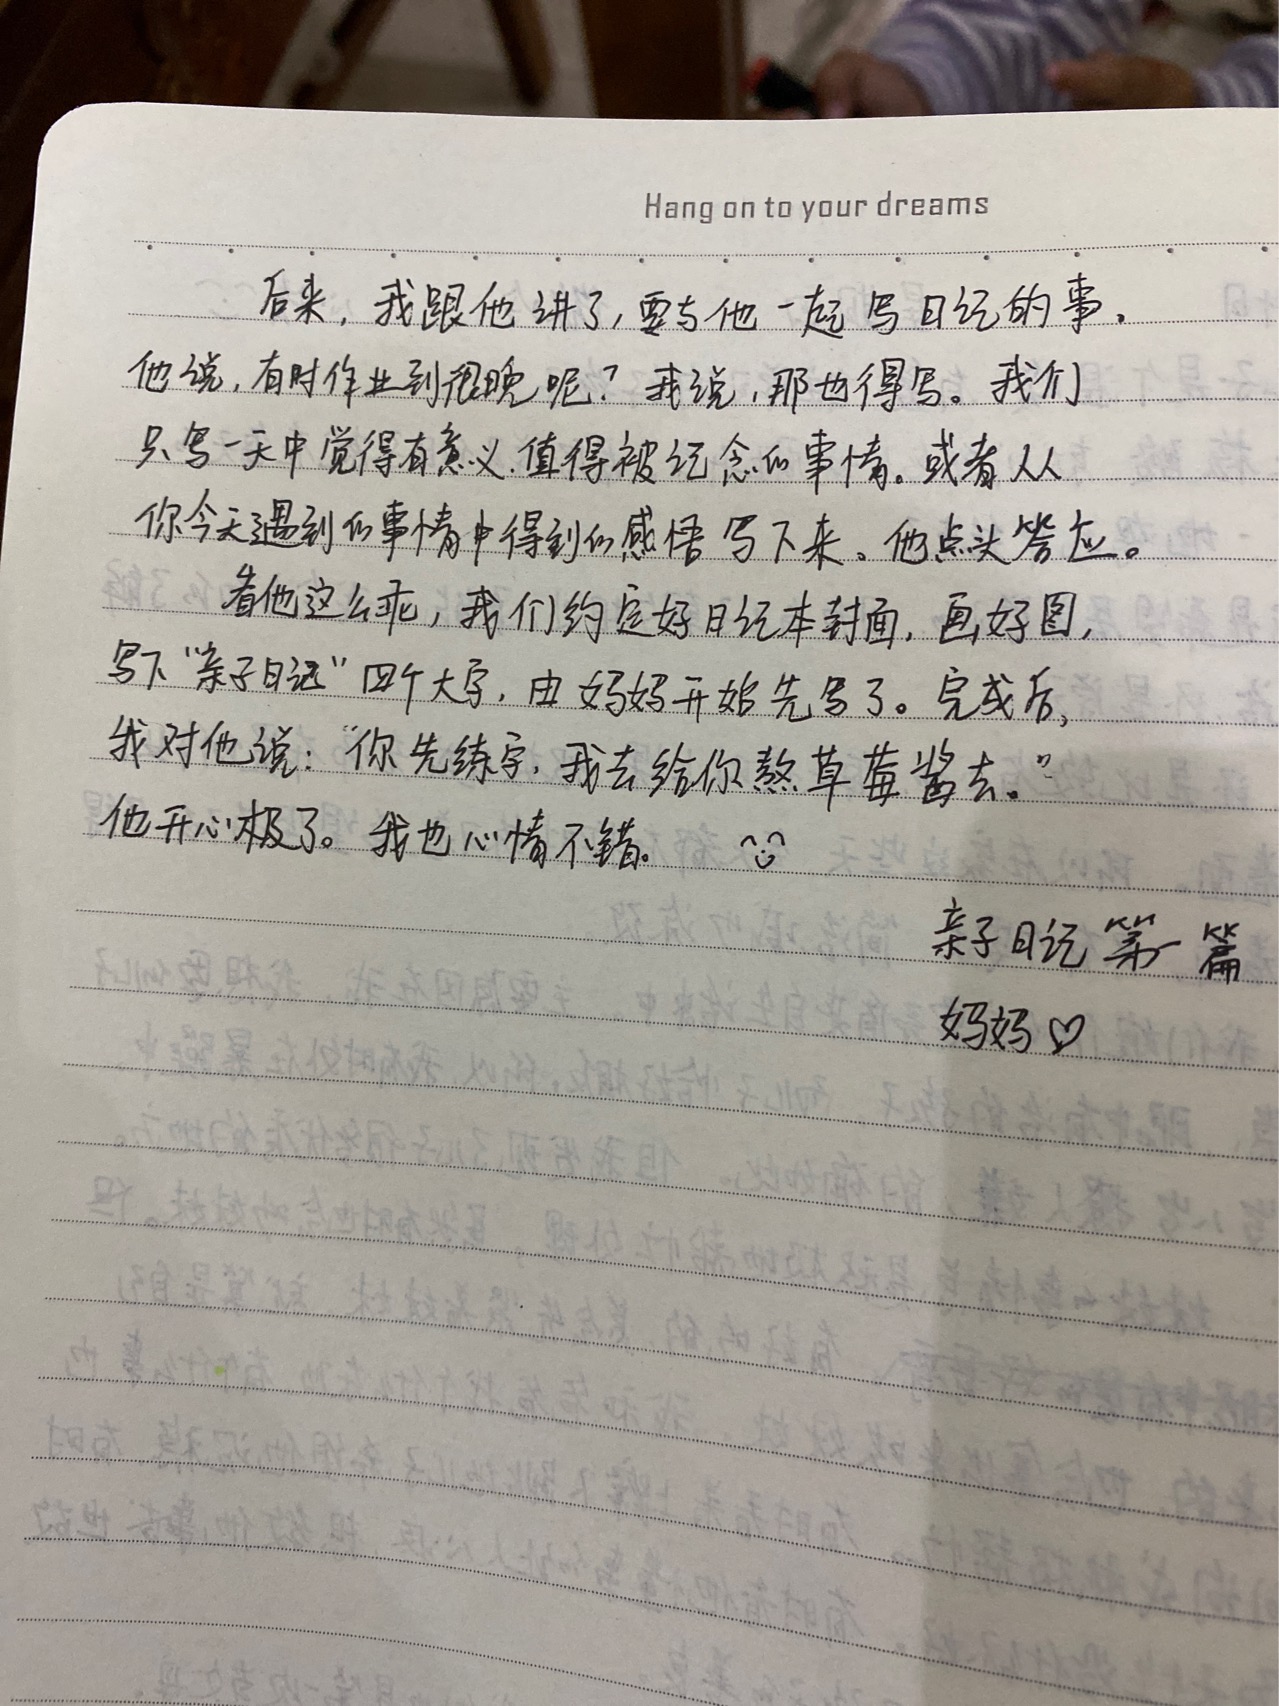 Hang on to your dreams
后来，我跟他讲了，要与他一起写日记的事。
他说，有时作业到很晚呢？我说，那也得写。我们
只写一天中觉得有意义、值得被记念的事情。或者从
你今天遇到的事情中得到的感悟写下来。他点头答应。
看他这么乖，我们约定好日记本封面，画好图，
写下“亲子日记”四个大字，由妈妈开始先写了。完成后，
我对他说：“你先练字，我去给你熬草莓酱去。”
他开心极了。我也心情不错。
亲子日记第一篇
妈妈♡